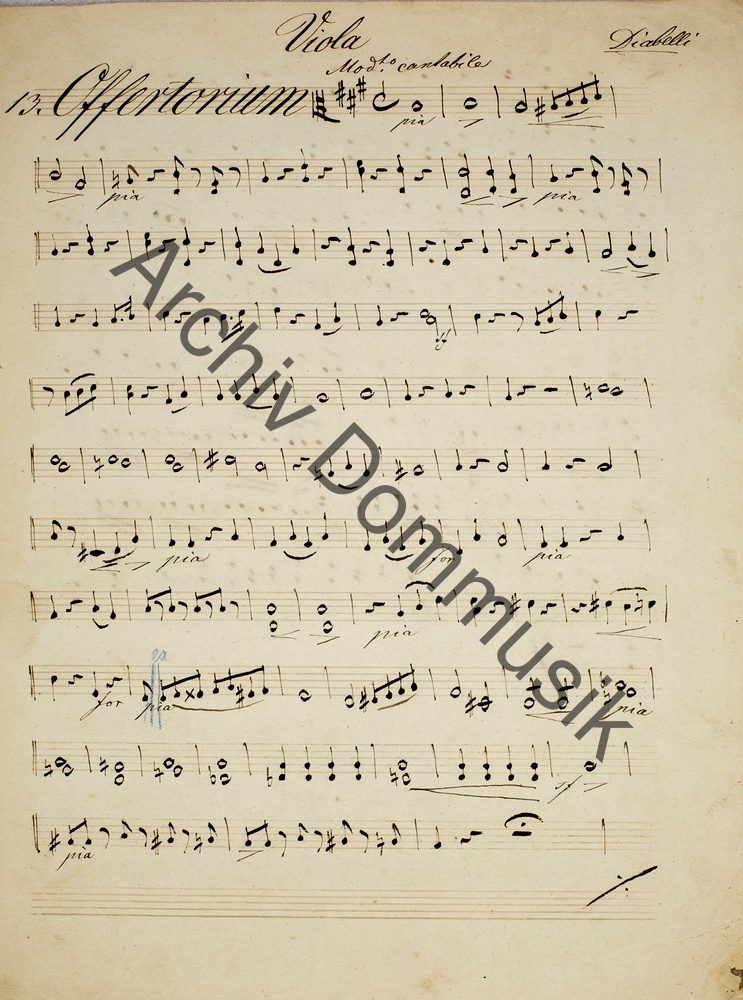 Viola
Diabelli
Mod.to cantabile
13. Offertorium
pia
pia pia
pia for pia
pia
for pia pia
sf
pia
Archiv Dommusik